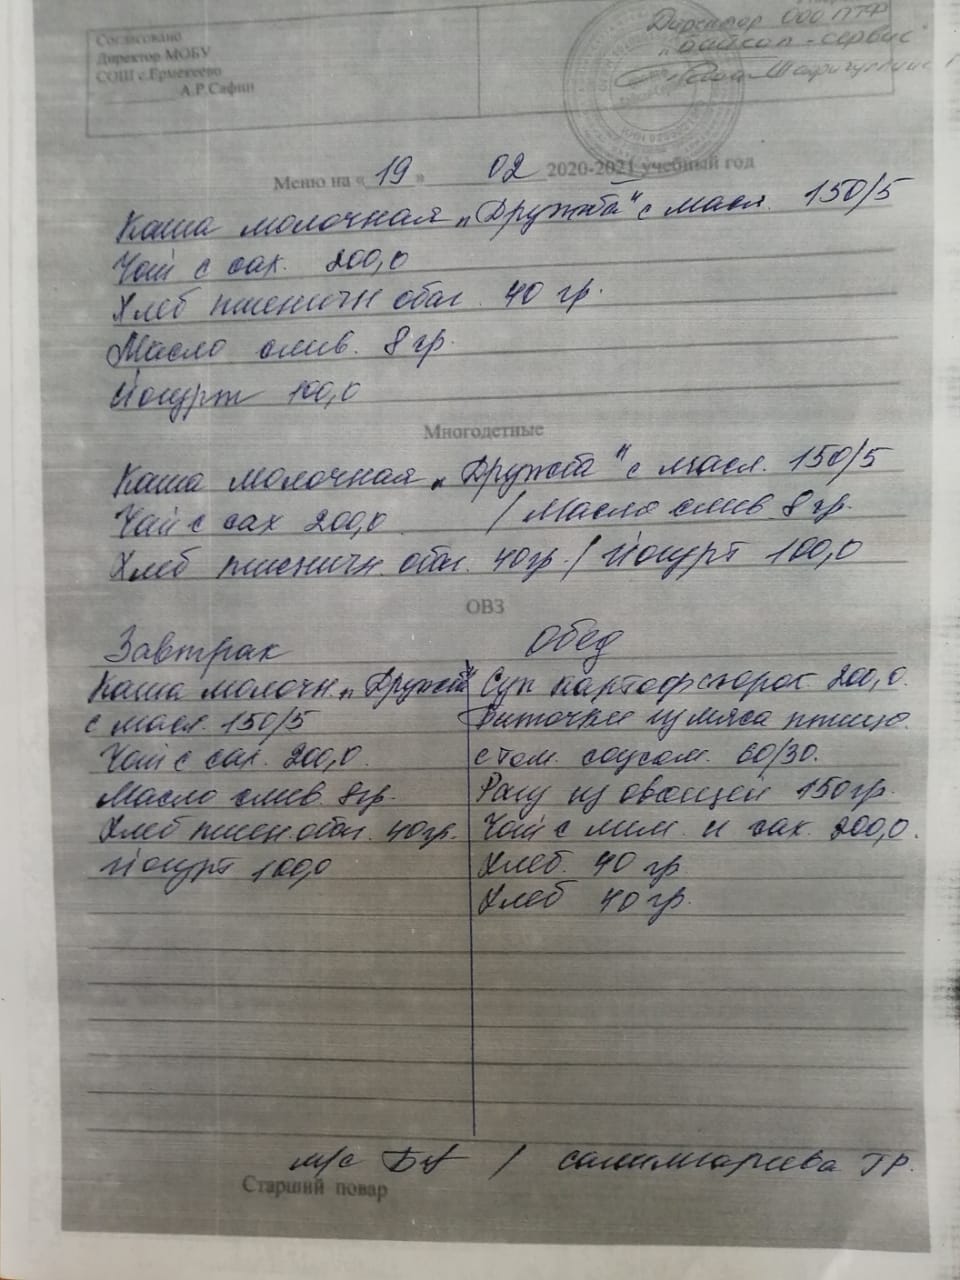 Согласовано
Директор МОБУ
СОШ с.Ермекеево
А.Р.Сафин
Директор ООО ПТФ
"Байкал-сервис"
Меню на « 19 » 02 2020-2021 учебный год
Каша молочная „Дружба" с масл. 150/5
Чай с сах. 200,0
Хлеб пшеничн обог. 40 гр.
Масло слив. 8 гр.
Йогурт 100,0
Многодетные
Каша молочная „Дружба" с масл. 150/5
Чай с сах 200,0 / Масло слив 8 гр.
Хлеб пшеничн. обог. 40гр. / Йогурт 100,0
ОВЗ
Завтрак
Каша молочн. „Дружба"
с масл. 150/5
Чай с сах. 200,0.
Масло слив. 8гр.
Хлеб пшен. обог. 40гр.
Йогурт 100,0
Обед
Суп картоф с горох. 200,0.
Биточки из мяса птицы.
с том. соусом. 60/30.
Рагу из овощей 150гр.
Чай с лим. и сах. 200,0.
Хлеб. 40 гр
Хлеб 40 гр.
м/с / Салимгареева Г.Р.
Старший повар